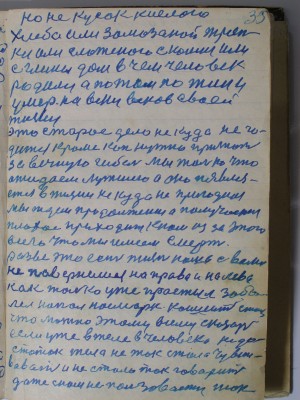 35
но не кусок киелого
хлеба или замазаной тряп
ки или сложеного скамы или
с глины дом в чем человек
родили а потом по жил и
умер. на веки веков в своей
жизни
это старое дело не куда не го-
дится кроме как нужно принять
за вечную гибель мы только что
ожидаем лучшего а оно появля-
ется в жизни не куда не пригодным
мы ждем продолжения а получаем
плохое приходит к нам из за этого
всего что мы имеем смерть.
разве это есть жизнь наша с вами
не повернешся на право и налево
как только уже простыл забо
лел напал насморк кашель
что можно этому всему сказать
если уже в теле в человеке недо
статок тела не так стало чувст-
вовать и не стало так говорить
даже сном не пользоваться так